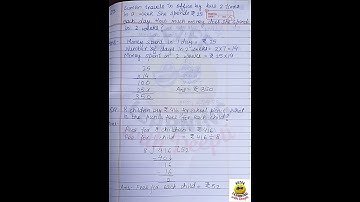 Suman travels to office by bus 2 times
in a week. She spends ₹25
each day. How much money does she spend
in 2 weeks?
Ans:- Money spent in 1 day = ₹25
Number of days in 2 weeks = 2x7=14
Money spent in 2 weeks = ₹25x14
25
x14
100
25x
350
Ans = ₹350
8 children pay ₹416 for school picnic. What
is the picnic fees for each child?
Ans:
Fees for 8 children = ₹416
Fees for 1 child = ₹416÷8
8 416 52
-40
16
-16
0
Ans: Fees for each child = ₹52